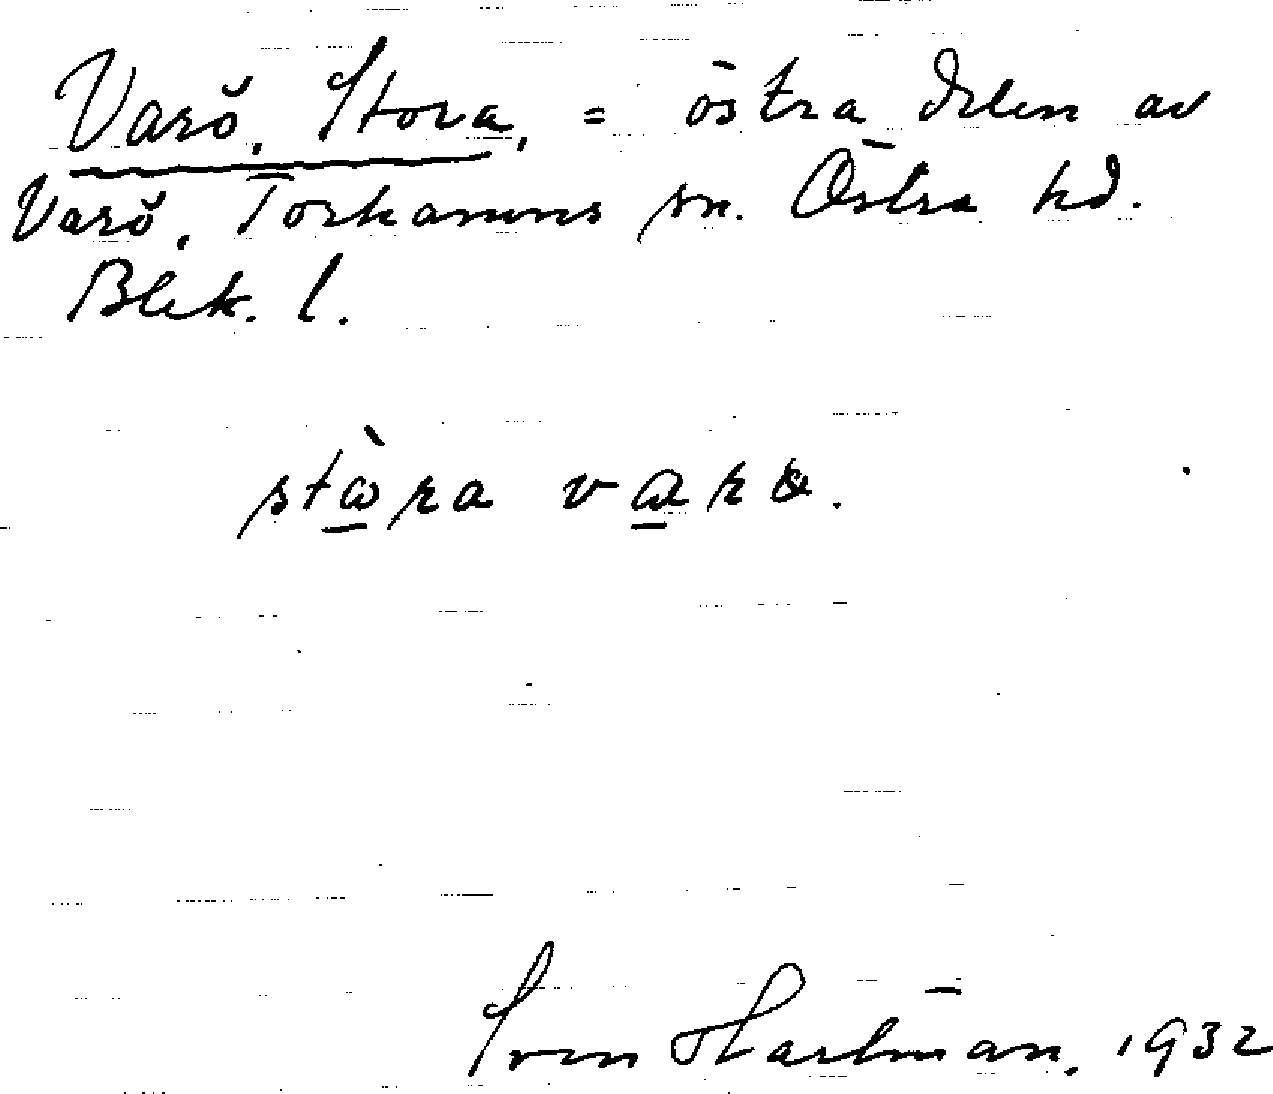 Varö, Stora, = östra delen av
Varö, Torhamns sn. Östra hd.
Blek. l.
Sven Hartman, 1932